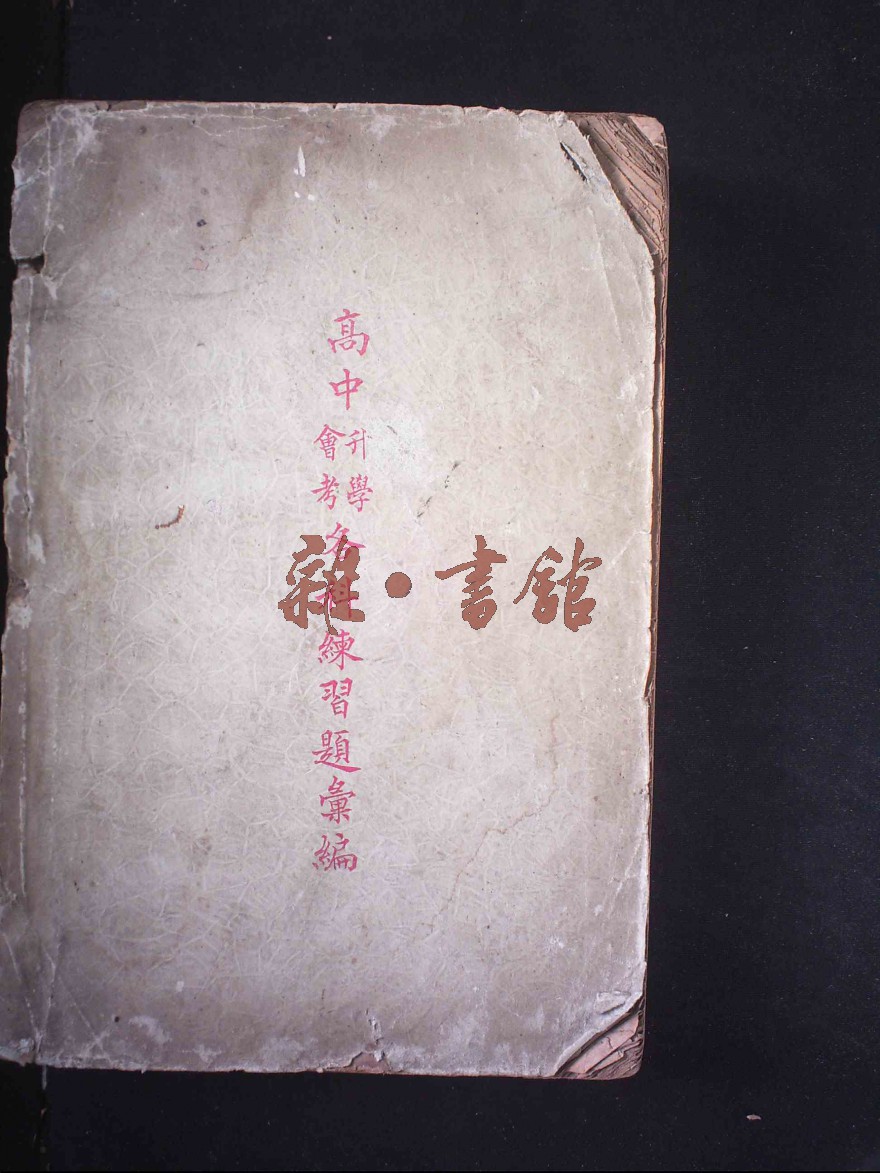 高中升學會考各科練習題彙編
雜·書館